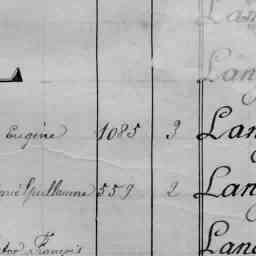 Lan
L Lang
Eugène 1085 3 Lan
Guillaume 559 2 Lang
François Lan